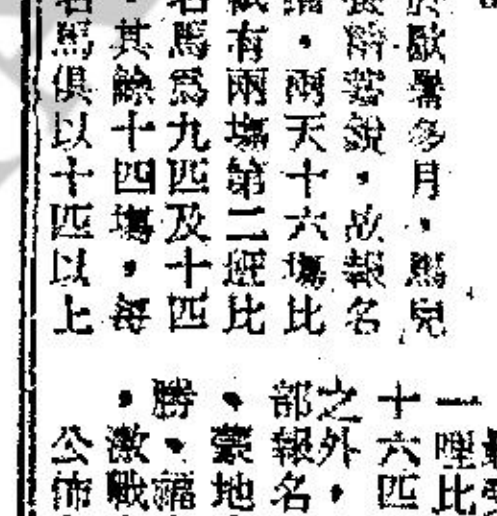 歇暑多月，馬兒
蓄銳，故報名
，兩天十六場比
有兩場第二班比
名馬爲九匹及十四
，其餘十四場，每
名馬俱以十匹以上
一哩比
十六匹
之外，
部報名
、蒙地
勝、福
，激戰
公佈